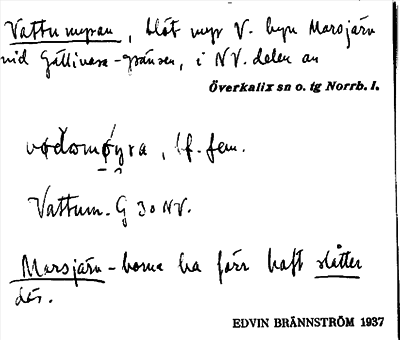 Vattumyran, blöt myr V. byn Marsjärv
vid Gällivare-gränsen, i NV. delen av
Överkalix sn o. tg Norrb. l.
, bf. fem.
Vattum. G 30 NV.
Marsjärv-borna ha förr haft slåtter
där.
EDVIN BRÄNNSTRÖM 1937